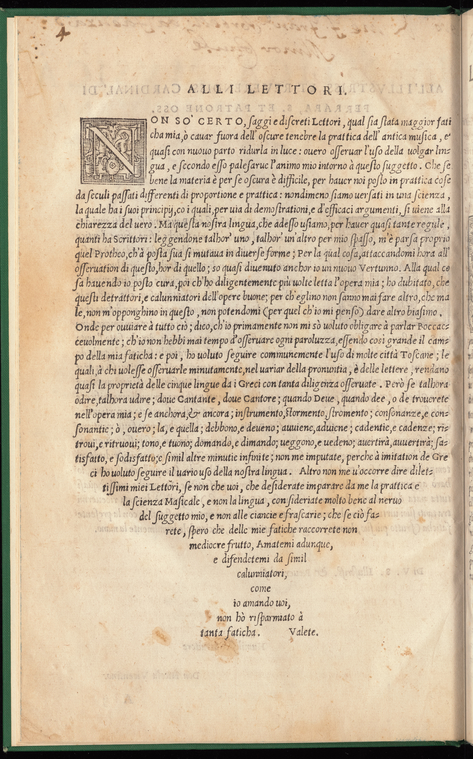 4
ALLI LETTORI.
NON SO' CERTO, saggi e discreti Lettori, qual sia stata maggior fati
cha mia, ò cauar fuora dell'oscure tenebre la prattica dell' antica musica, e'
quasi con nuouo parto ridurla in luce: ouero osseruar l'uso della uolgar lin-
gua, e secondo esso palesarue l'animo mio intorno à questo suggetto. Che se
bene la materia è per se oscura è difficile, per hauer noi posto in prattica cose
da seculi passati differenti di proportione e prattica: nondimeno siamo uersati in una scienza,
la quale ha i suoi principij, co i quali, per uia di demostrationi, e d'efficaci argumenti, si uiene alla
chiarezza del uero. Ma questa nostra lingua, che adesso usiamo, per hauer quasi tante regule,
quanti ha Scrittori: leggendone talhor' uno, talhor' un'altro per mio spasso, m'è parsa proprio
quel Protheo, ch'à posta sua si mutaua in diuerse forme; Per la qual cosa, attaccandomi hora all'
osseruation di questo, hor di quello; so quasi diuenuto anchor io un nuouo Vertunno. Alla qual co
sa hauendo io posto cura, poi ch'ho diligentemente più uolte letta l'opera mia; ho dubitato, che
questi detrattori, e calunniatori dell'opere buone; per ch'eglino non sanno mai fare altro, che ma
le, non m'opponghino in questo, non potendomi (per quel ch'io mi penso) dare altro biasimo.
Onde per ouuiare à tutto ciò; dico, ch'io primamente non mi sò uoluto obligare à parlar Boccac-
ceuolmente; ch'io non hebbi mai tempo d'osseruare ogni paroluzza, essendo così grande il cam-
po della mia faticha: e poi, ho uoluto seguire communemente l'uso di molte città Toscane; le
quali, à chi uolesse osseruarle minutamente, nel uariar della pronuntia, è delle lettere, rendano
quasi la proprietà delle cinque lingue da i Greci con tanta diligenza osseruate. Però se talhora
odire, talhora udire; doue Cantante, doue Cantore; quando Deue, quando dee, o de trouerete
nell'opera mia; e se anchora, & ancora; instrumento, stormento, stromento; consonanze, e con-
sonantie; ò, ouero; la, e quella; debbono, e deueno; auuiene, aduiene; cadentie, e cadenze; ri-
troui, e ritruoui; tono, e tuono; domando, e dimando; ueggono, e uedeno; auertirà, auuertirà; sa-
tisfatto, e sodisfatto; e simil altre minutie infinite; non me imputate, perche à imitation de Gre
ci ho uoluto seguire il uario uso della nostra lingua. Altro non me u'occorre dire dilet-
tissimi miei Lettori, se non che uoi, che desiderate imparare da me la prattica e
la scienza Musicale, e non la lingua, consideriate molto bene al neruo
del suggetto mio, e non alle ciancie e frascarie; che se ciò fa-
rete, spero che delle mie fatiche raccorrete non
mediocre frutto, Amatemi adunque,
e difendetemi da simil
calunniatori,
come
io amando uoi,
non hò risparmiato à
tanta faticha. Valete.